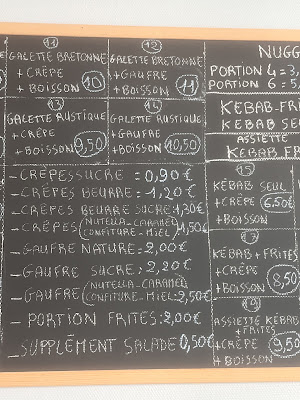 11
GALETTE BRETONNE
+ CRÊPE
+ BOISSON 10
12
GALETTE BRETONNE
+ GAUFRE
+ BOISSON 11
13
GALETTE RUSTIQUE
+ CRÊPE
+ BOISSON 9,50
14
GALETTE RUSTIQUE
+ GAUFRE
+ BOISSON 10,50
- CRÊPES SUCRE = 0,90€
- CRÊPES BEURRE = 1,20€
- CRÊPES BEURRE SUCRE = 1,30€
- CRÊPES (NUTELLA - CARAMEL
CONFITURE - MIEL) 1,50€
- GAUFRE NATURE = 2,00€
- GAUFRE SUCRE = 2,20€
- GAUFRE (NUTELLA - CARAMEL
CONFITURE - MIEL) 2,50€
- PORTION FRITES: 2,00€
- SUPPLÉMENT SALADE 0,50€
NUGG
PORTION 4 = 3,
PORTION 6 = 5,
KEBAB-FR
KEBAB SEUL
ASSIETTE
KEBAB FR
15
KEBAB SEUL
+ CRÊPE 6,50€
+ BOISSON
17
KEBAB + FRITES
+ CRÊPE 8,50
+ BOISSON
19
ASSIETTE KEBAB
+ FRITES
+ CRÊPE 9,50
+ BOISSON